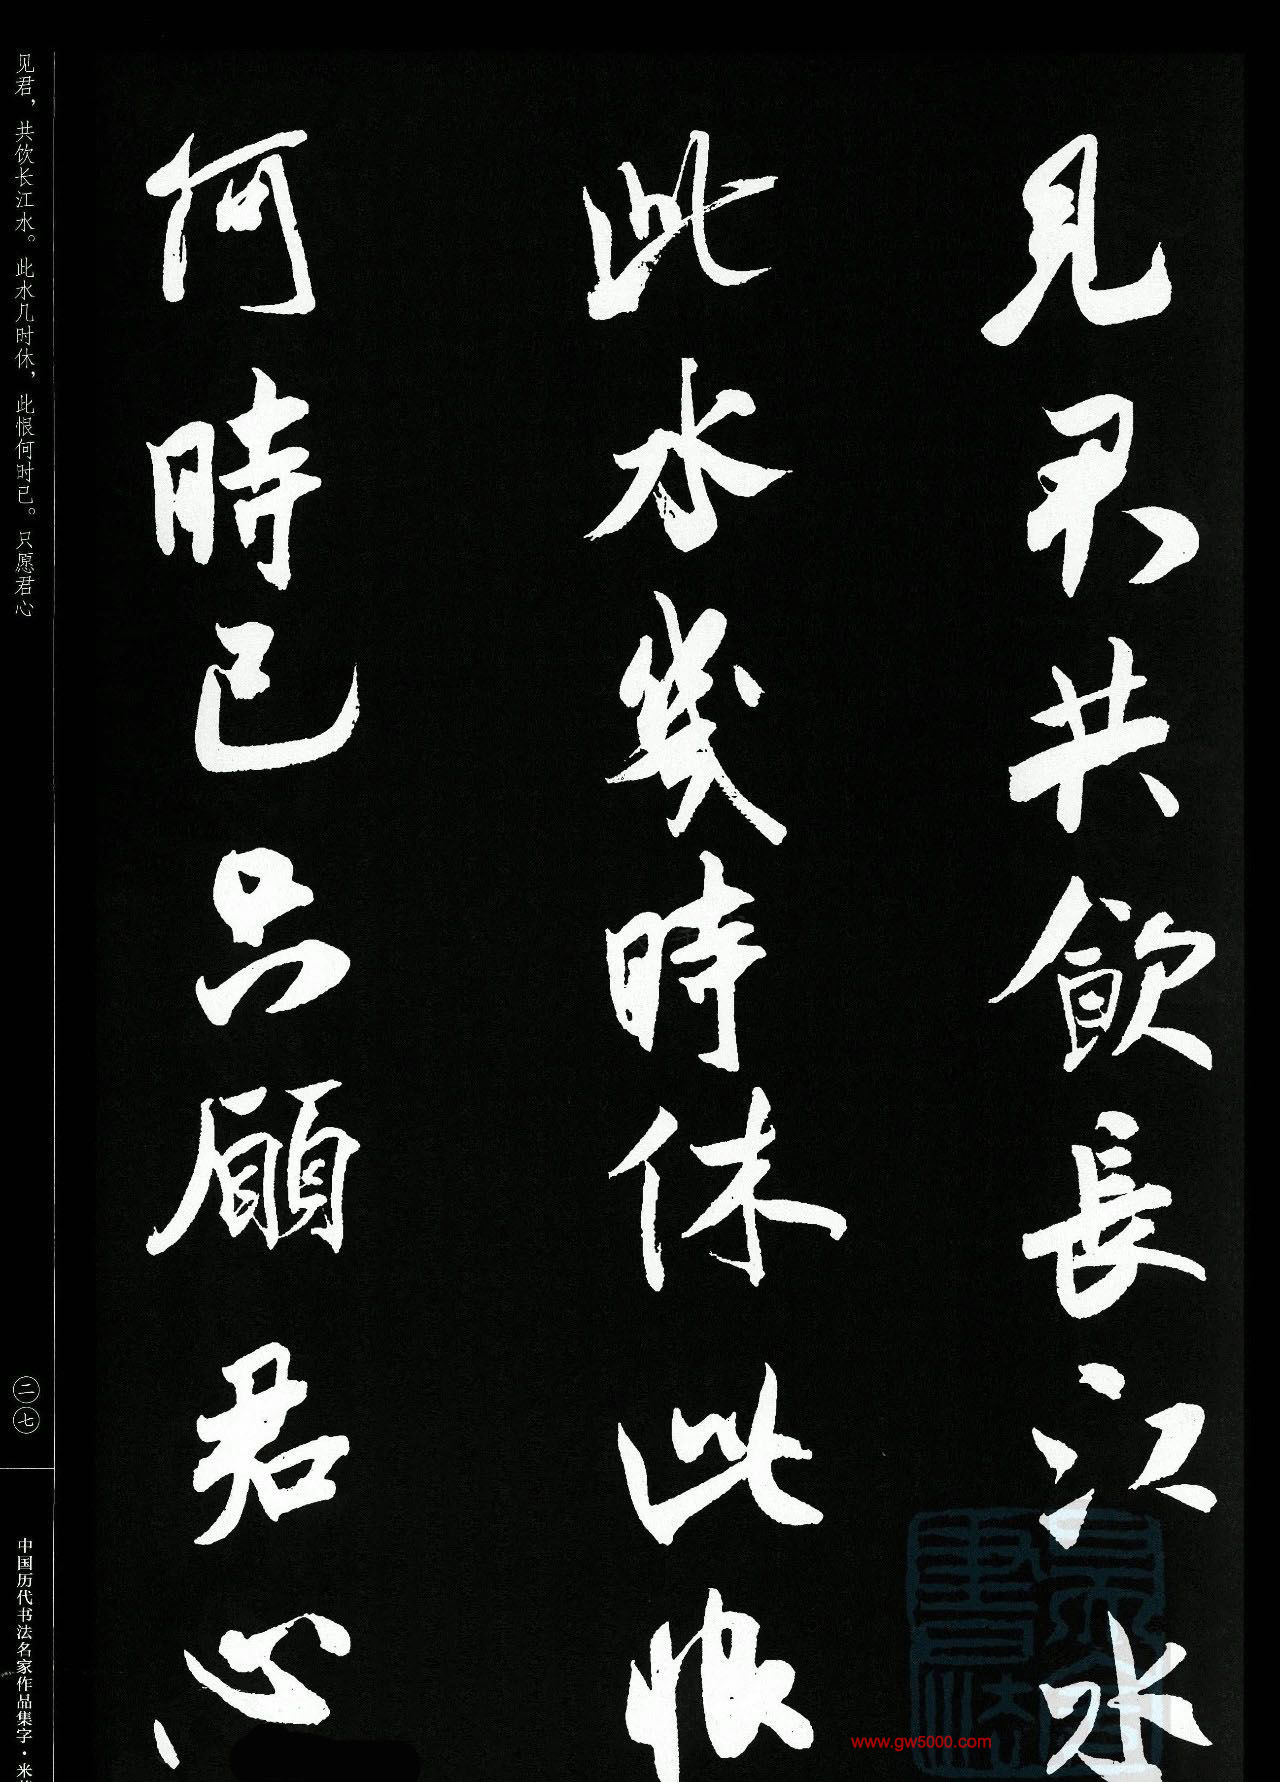 見君共飲長江水
此水幾時休此恨
何時已只願君心
见君，共饮长江水。此水几时休，此恨何时已。只愿君心
二七
中国历代书法名家作品集字·米
www.gw5000.com